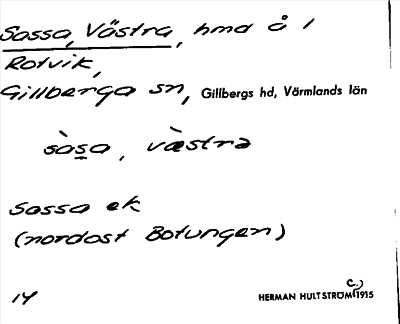 Sassa, Västra, hmd å 1
Rotvik,
Gillberga sn, Gillbergs hd, Värmlands län
sàsa, vàestra
Sassa ek
(nordost Botungen)
14
HERMAN HULTSTRÖM (C.) 1915